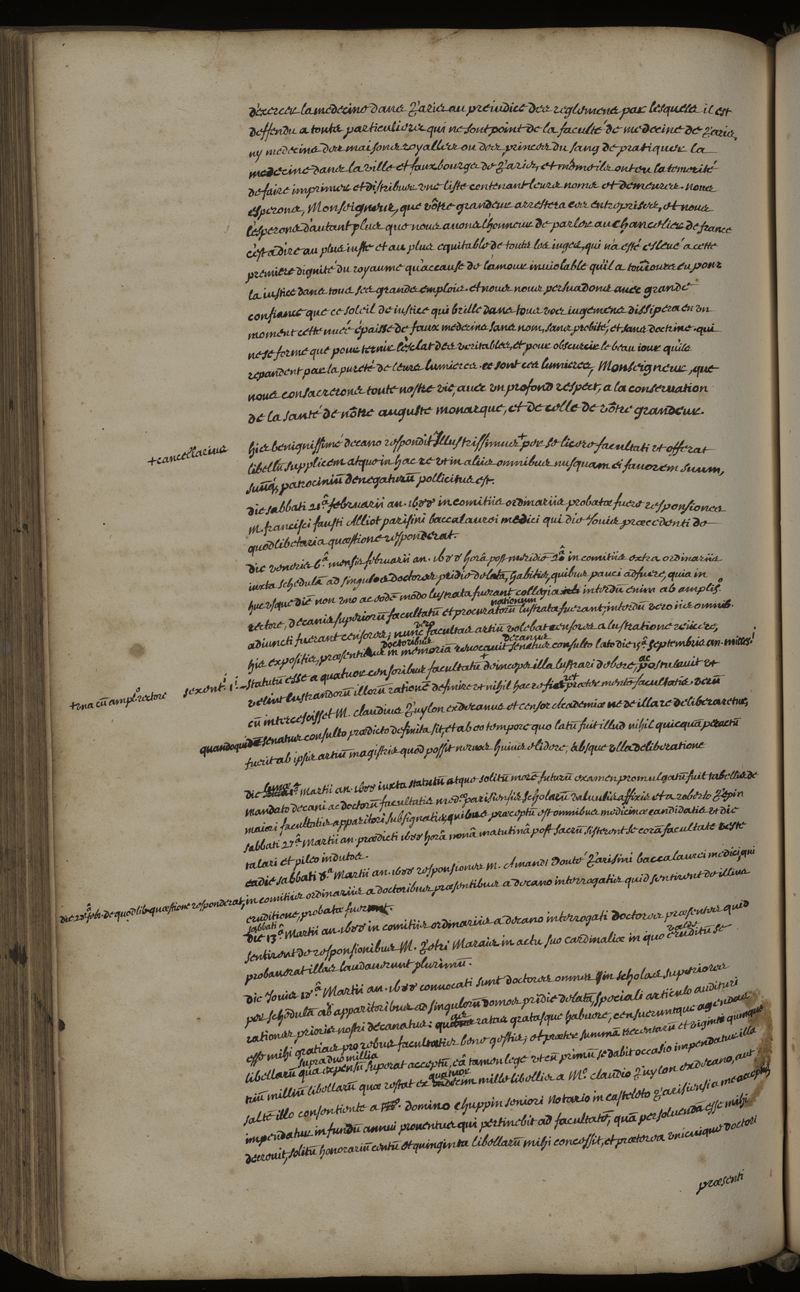 d'exercer la medecine dans Paris au preiudice des reglemens par lesquels il est
deffendu a touts particuliers qui ne sont point de la faculté de medecine de Paris,
ny medecins des maisons royalles ou des princes du sang de pratiquer la
medecine dans la ville et fauxbourgs de Paris, et mesme ils ont eu la temerité
de faire imprimer et distribuer vne liste contenant leurs noms et demeures. nous
esperons, Monseigneur, que vôtre grandeur arrestera ces entreprises, et nous
l'esperons d'autant plus que nous auons l'honneur de parler au Chancelier de france
c'est a dire au plus iuste et au plus equitable de touts les iuges, qui n'a esté esleué a cette
premiere dignité du royaume qu'a cause de l'amour inuiolable qu'il a tousiours eu pour
la iustice dans tous ses grands emplois. et nous nous persuadons auec grande
confiance que ce soleil de iustice qui brille dans tous vos iugemens dissipera en vn
moment cette nuée épaisse de faux medecins sans nom, sans probité, et sans doctrine. qui
ne se forme que pour ternir l'éclat des veritables, et pour obscurcir le beau iour qu'ils
repandent par la pureté de leurs lumieres. ce sont ces lumieres, Monseigneur, que
nous consacrerons toute nostre vie, auec vn profond respect, a la conseruation
de la santé de nôtre auguste monarque, et de celle de vôtre grandeur.
+cancellarius
his benignissime decano respondit Illustrissimus + per se licere facultati vt offerat
libellū supplicem atque in hac re vt in aliis omnibus nusquam ei fauorem suum,
suūq; patrociniū denegaturum pollicitus est.
die sabbati 21.a februarii an. 1688 in comitiis ordinariis probatæ fuere responsiones
M. francisci fausti Alliot parisini baccalaurei medici qui die Iouis præcedenti de
quodlibetaria quæstione responderat.
die veneris 6.a mensis februarii an. 1688 horâ post meridiē 2.a in comitiis extra ordinariis
iuxta schedulā ad singulos doctores pridie delatā, habitis, quibus pauci adfuere, quia in
hucusque diē non vno ac eodē modo lustrata fuerant collegia interdū enim ab ampliss.o
rectore, decanis superiorū facultatū et procuratorū nationum lustrata fuerant, interdū vero iis omnib.
adiuncti fuerant censores; nunc vero facultas artiū volebat censores a lustratione reiicere,
his expositis, præsentibus doctoribus in memoria reuocauit decanus senatus consulto lato die 15.a septembris an. milles.i
+vna cū ampl.o rectore
sexcent.i
statutū esse a quatuor censoribus facultatū + deinceps illa lustrari debere, ac postulauit vt
velint lustrandorū illorū rationē definire et nihil hac re præter mentē facultatis. verū
cū intercessisset M. claudius Puylon exdecanus et censor Academiæ ne de illa re deliberaretur,
quandoquidē senatus consulto prædicto definita sit, et ab eo tempore quo latū fuit illud nihil quicquā peractū
fuerit ab ipsis artiū magistris quod possit neruos huius elidere, absque vlla deliberatione
die Martii an. 1688 iuxta statutū atque solitū morē futurū examen promulgatū fuit tabellis de
mandato decani ac doctorū facultatis med. parisiensis scholarū valuis affixis et a roberto Pepin
maiori facultatis apparitori subsignatis, quibus præceptū est omnibus medicinæ candidatis vt die
sabbati 27.a Martii an. prædicti 1688 horâ nonâ matutinâ post sacrū sisterent se corā facultate veste
talari et pileo indutos.
eadē sabbati 6.a Martii an. 1688 responsiones M. Amandi Douté Parisini baccalaurei medici, qui
die 20.a feb. de quodlib. quæstione responderat,
in comitiis ordinariis a doctoribus præsentibus a decano interrogatis quid sentirent de illius
eruditione, probatæ fuerunt.
die sabbati 13.a Martii an. 1688 in comitiis ordinariis a decano interrogati doctores præsentes quid
sentirent de responsionibus M. Petri Marais in actu suo cardinalitiæ in quo valdè eruditū se
probauerat illas laudauerunt plurimū.
die Iouis 18.a Martii an. 1688 conuocati sunt doctores omnes in scholas superiores
per schedulā ab apparitoribus ad singulorū domos pridie delatā, speciali articulo audituri
rationes prioris nostri decanatus: quas ratas gratasque habuere, censueruntque agendas
esse mihi gratias pro rebus facultatis bene gestis; et præter summā trecentarū et viginti quinque
libellarū supra duo millia qua expensū superat acceptū, eâ tamen lege vt cū primū se dabit occasio impendatur illa
triū milliū libellarū quæ restat ex quatuor mille libellis a M.o claudio Puylon exdecano, aut
saltē illo consentiente a domino chuppin seniori notario in casteleto Parisiensi a me acceptis
impendatur in fundū annui prouentus qui pertinebit ad facultatē, quā persoluendā esse mihi
decreuit, solitū honorariū centū et quinginta libellarū mihi concessit, et præterea vnicuique doctori
præsenti